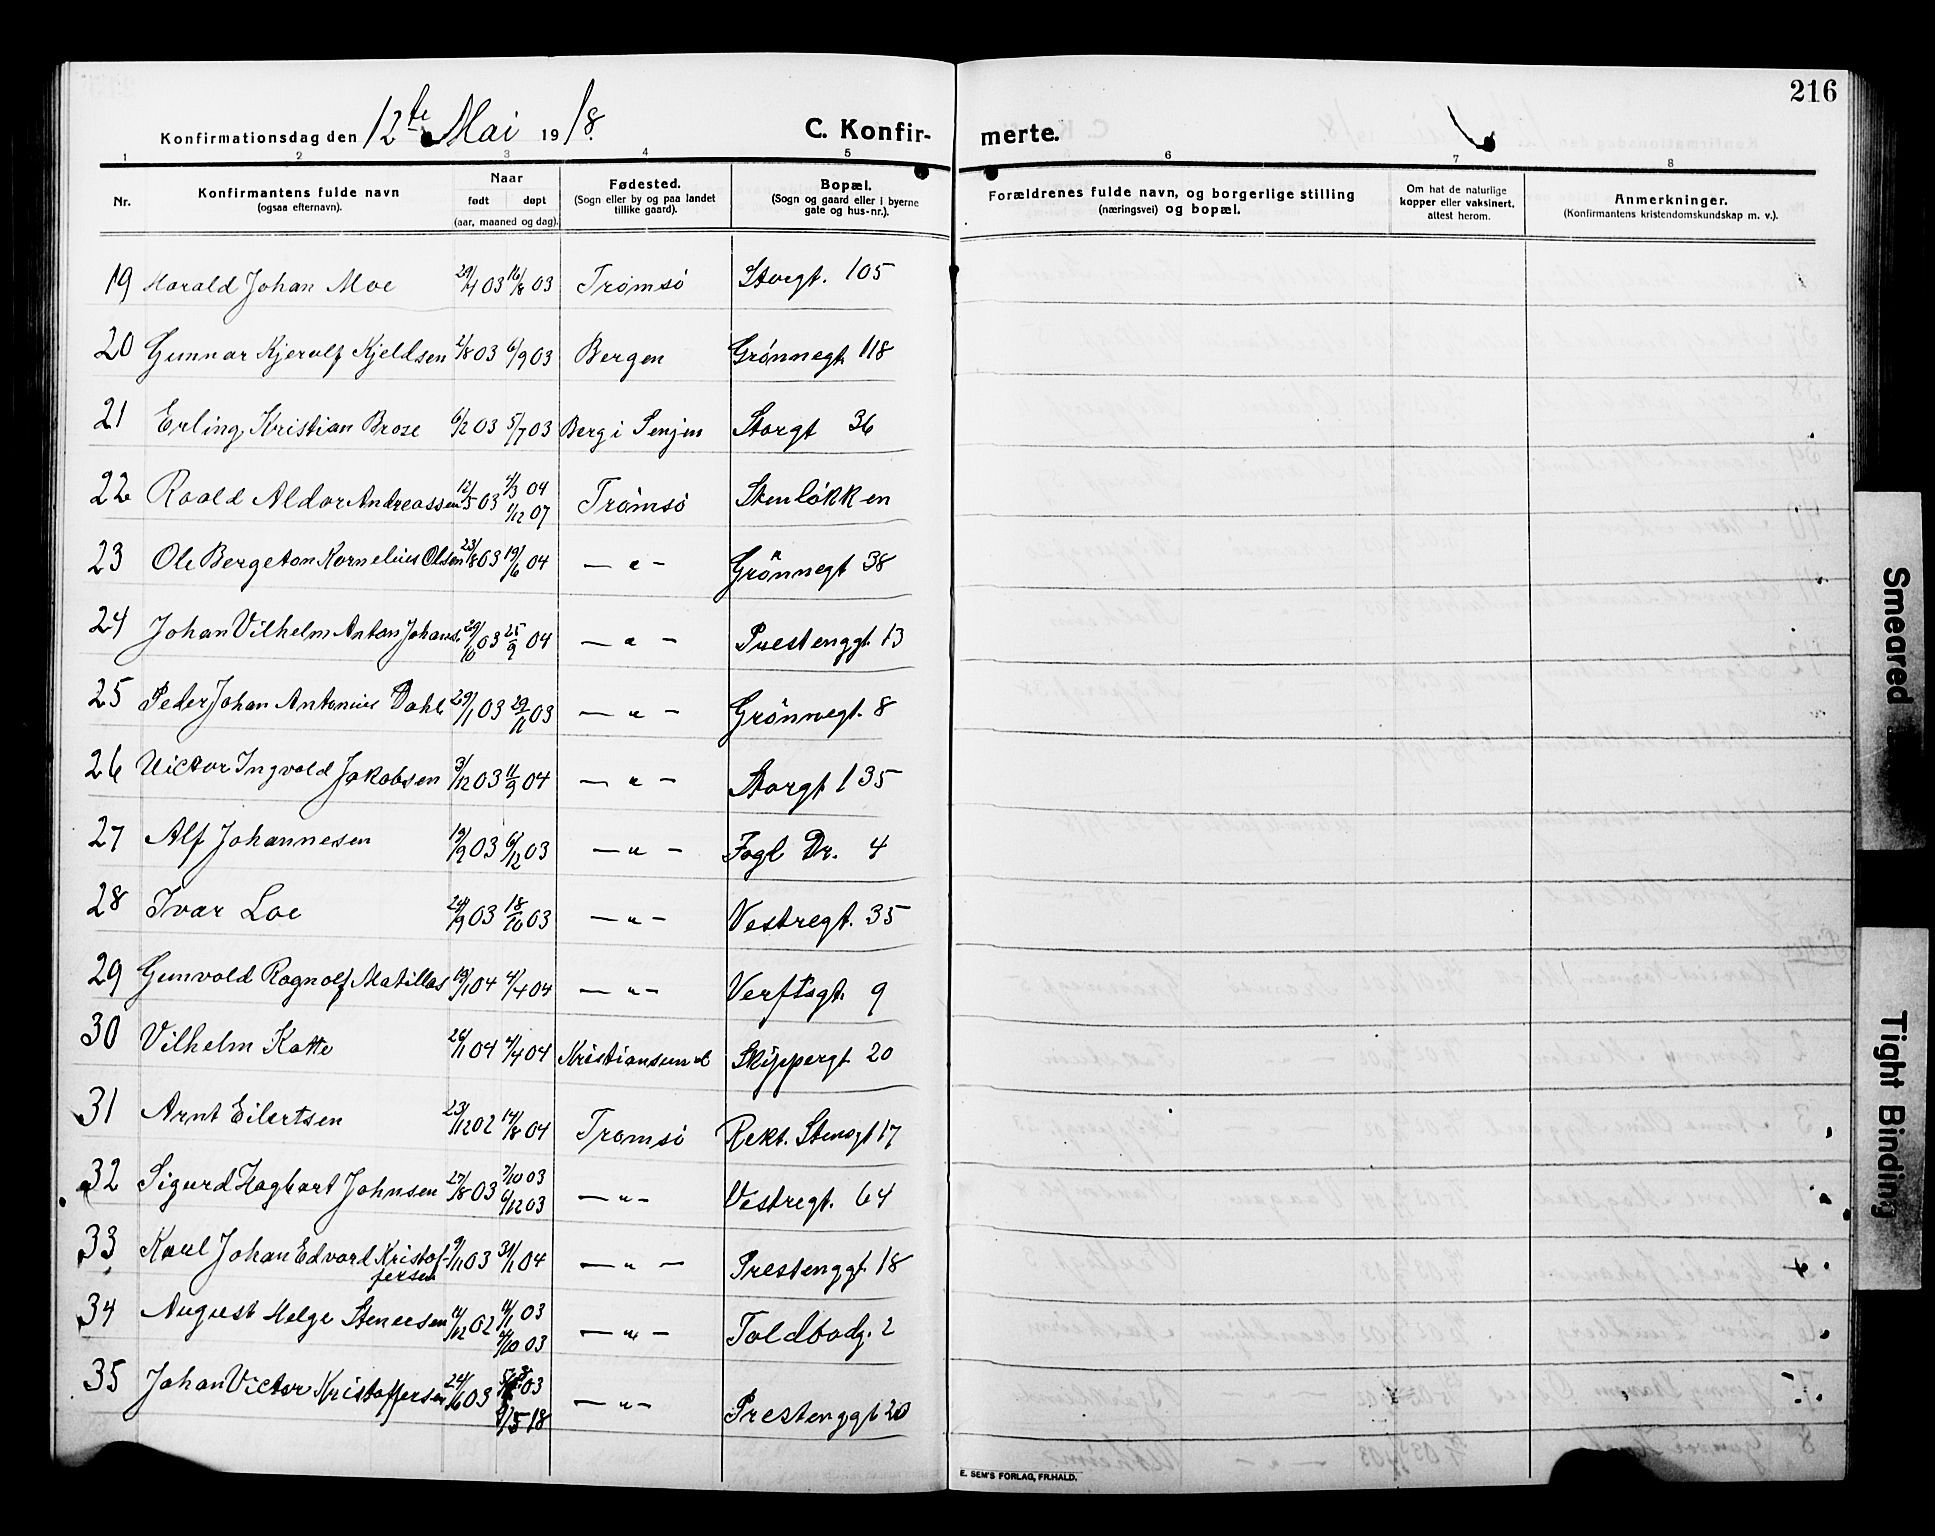 216
Konfirmationsdag den 12te Mai 1918.
C. Konfirmerte.
1 2 3 4 5 6 7 8
Nr.
Konfirmantens fulde navn
(ogsaa efternavn).
Naar
født døpt
(aar, maaned og dag).
Fødested.
(Sogn eller by og paa landet
tillike gaard).
Bopæl.
(Sogn og gaard eller i byerne
gate og hus-nr.).
Forældrenes fulde navn, og borgerlige stilling
(næringsvei) og bopæl.
Om hat de naturlige
kopper eller vaksinert,
attest herom.
Anmerkninger.
(Konfirmantens kristendomskundskap m. v.).
19 Harald Johan Moe 29/4 03 16/8 03 Tromsö Storgt. 105
20 Gunnar Kjerulf Kjeldsen 2/8 03 6/9 03 Bergen Grönnegt. 118
21 Erling Kristian Brose 6/2 03 5/7 03 Berg i Senjen Storgt 36
22 Roald Aldor Andreassen 12/5 03 4/3 04 Tromsö Stenlökken
1/12 07
23 Ole Bergeton Kornelius Olsen 23/8 03 19/6 04 — " — Grönnegt 38
24 Johan Vilhelm Anton Johans. 29/10 03 25/9 04 — " — Prestenggt. 13
25 Peder Johan Antonius Dahl 29/1 03 29/11 03 — " — Grönnegt. 8
26 Victor Ingvald Jakobsen 3/12 03 11/9 04 — " — Storgt 135
27 Alf Johannesen 19/9 03 6/12 03 — " — Fogl Dr. 4
28 Ivar Loe 24/9 03 18/10 03 — " — Vestregt. 35
29 Gunvald Ragnolf Matillas 19/1 04 4/4 04 — " — Verftsgt. 9
30 Vilhelm Kotte 26/1 04 4/4 04 Kristianssund Skippergt 20
31 Arnt Eilertsen 23/12 02 14/8 04 Tromsö Rekt. Stensgt 17
32 Sigurd Hagbart Johnsen 27/8 03 7/10 03 — " — Vestregt. 64
6/12 03
33 Karl Johan Edvard Kristof- 9/11 03 31/1 04 — " — Prestenggt. 18
fersen
34 August Helge Stenersen 11/12 02 11/1 03 — " — Toldbodg. 2
4/10 03
35 Johan Victor Kristoffersen 24/6 03 03 — " — Prestenggt 20
9/5 18
E. SEM'S FORLAG, FR.HALD.
Smeared
Tight Binding